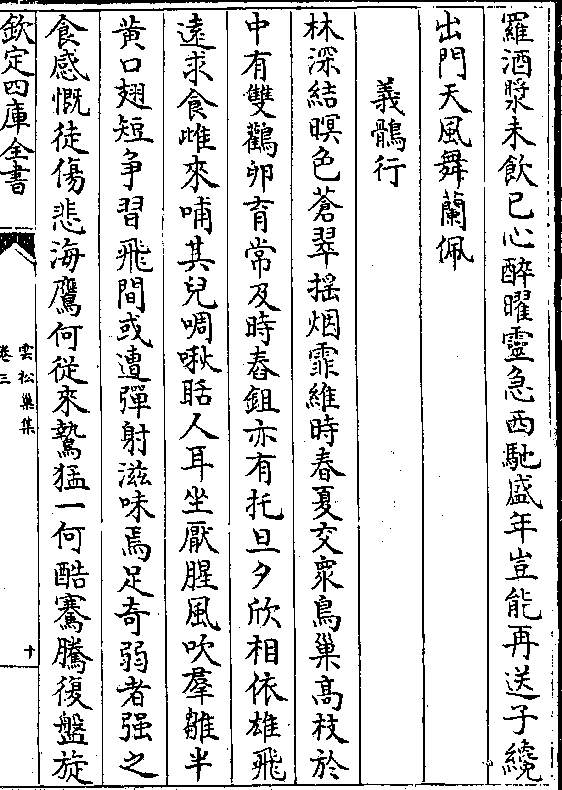 羅酒漿未飲已心醉曜靈急西馳盛年豈能再送子纔
出門天風舞蘭佩
義鶻行
林深結暝色蒼翠揺烟霏維時春夏交衆鳥巢高枝於
中有雙鸛卵育常及時舂鉏亦有托旦夕欣相依雄飛
遠求食雌來哺其兒啁啾聒人耳坐厭腥風吹羣雛半
黄口翅短争習飛間或遭彈射滋味焉足奇弱者强之
食感慨徒傷悲海鷹何從來鷙猛一何酷騫騰復盤旋
欽定四庫全書
雲松巢集
卷三
十